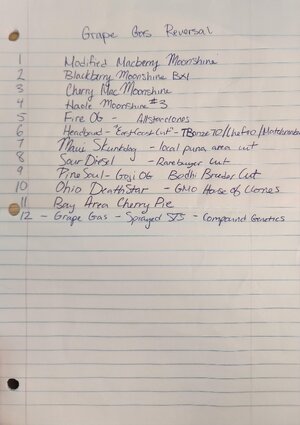 Grape Gas Reversal
1 Modified Macberry Moonshine
2 Blackberry Moonshine BX1
3 Cherry Mac Moonshine
4 Haole Moonshine #3
5 Fire OG - Abstraclones
6 Headband - "East Coast Cut" - TBone
7 Maui Skunkdog - local puna area cut
8 Sour Diesel - Rarebuyer cut
9 Pine Soul - Goji OG Bodhi Breeder Cut
10 Ohio DeathStar - GMO House of Clones
11 Bay Area Cherry Pie
12 - Grape Gas - Sprayed STS - Compound Genetics